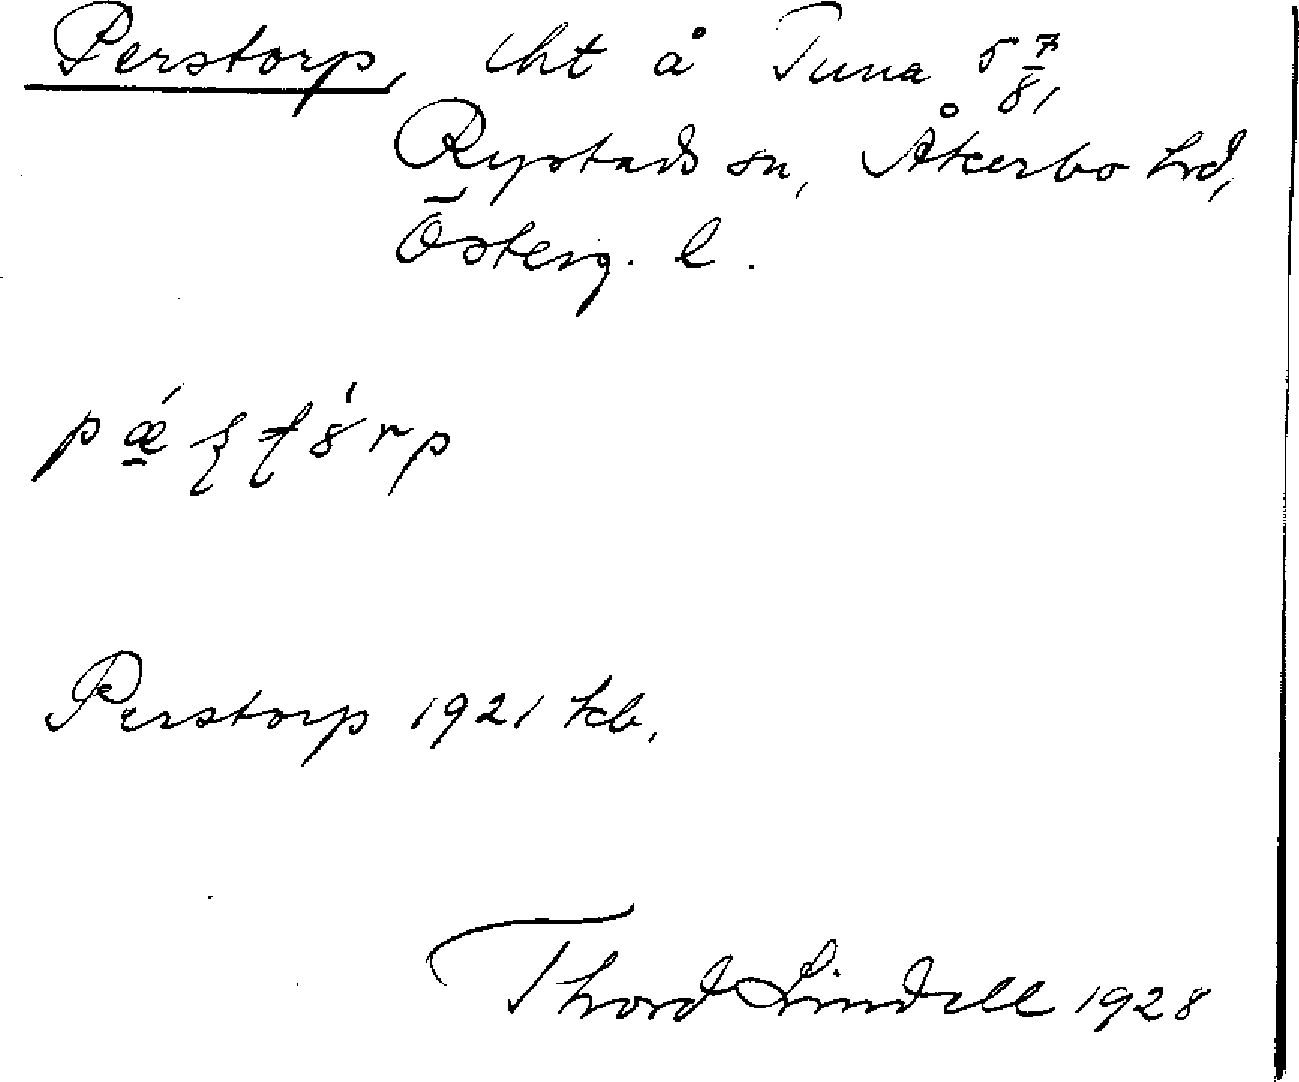 Perstorp, lht å Tuna 5 7/8,
Rystads sn, Åkerbo hd,
Österg. l.
pǽ̱ʂʈȣ́rp
Perstorp 1921 kb,
Thord Lindell 1928